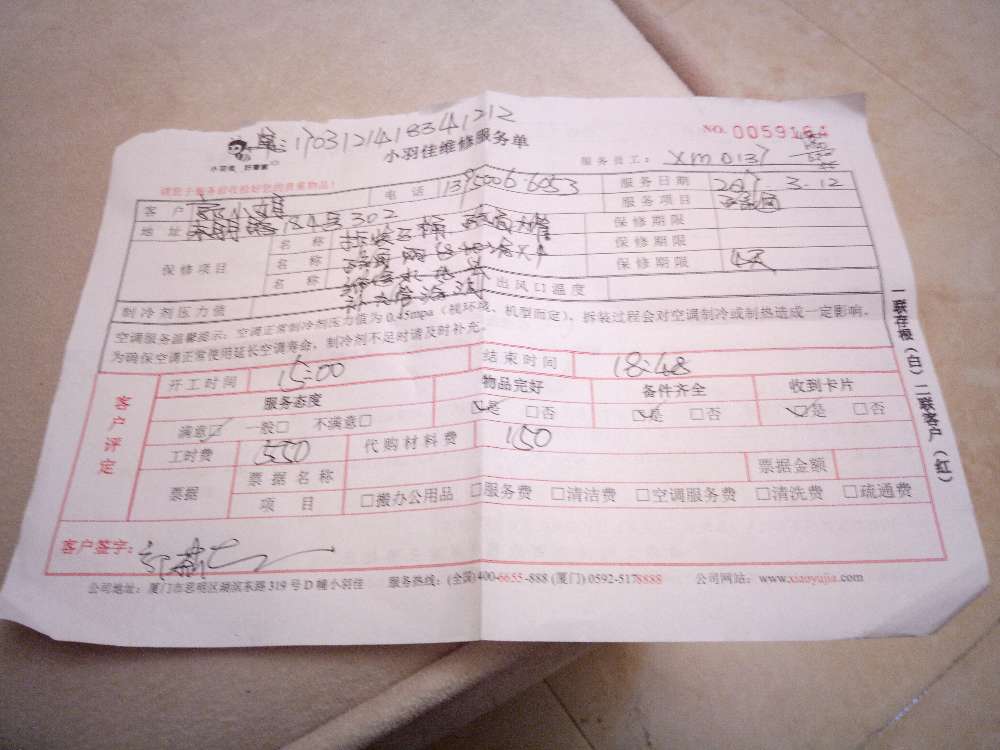 单:1703121418341212
NO. 0059164
小羽佳 好管家
小羽佳维修服务单
服务员工: XM0137
请您于服务前收拾好您的贵重物品!
客户 电话 13950066053 服务日期 2017.3.12
地址 184号302 服务项目
保修项目 名称 保修期限
名称 保修期限
名称 保修期限 4天
制冷剂压力值 出风口温度
空调服务温馨提示:空调正常制冷剂压力值为0.45mpa(视环境、机型而定)、拆装过程会对空调制冷或制热造成一定影响,
为确保空调正常使用延长空调寿命,制冷剂不足时请及时补充。
客户评定
开工时间 15:00 结束时间 18:48
服务态度 物品完好 备件齐全 收到卡片
满意☑ 一般□ 不满意□ ☑是 □否 ☑是 □否 ☑是 □否
工时费 550 代购材料费 150
票据 票据名称 票据金额
项目 □搬办公用品 □服务费 □清洁费 □空调服务费 □清洗费 □疏通费
客户签字:
公司地址:厦门市思明区湖滨东路319号D幢小羽佳 服务热线:(全国)400-6655-888 (厦门) 0592-5178888 公司网站:www.xiaoyujia.com
一联存根(白)二联客户(红)